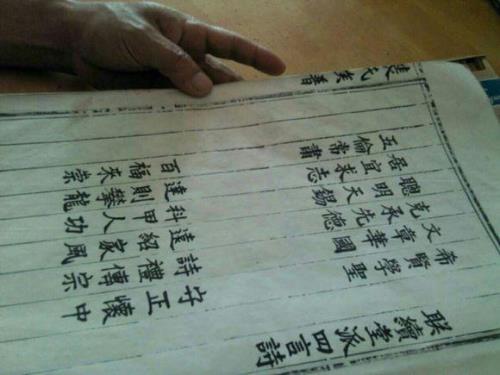 連氏族譜
联續堂派四言詩
希賢學聖 守正懷中
文章華國 詩禮傳宗
克承先德 遠紹家風
聰明天錫 科甲人功
居宜求志 達則攀龍
五倫常肅 百福來崇